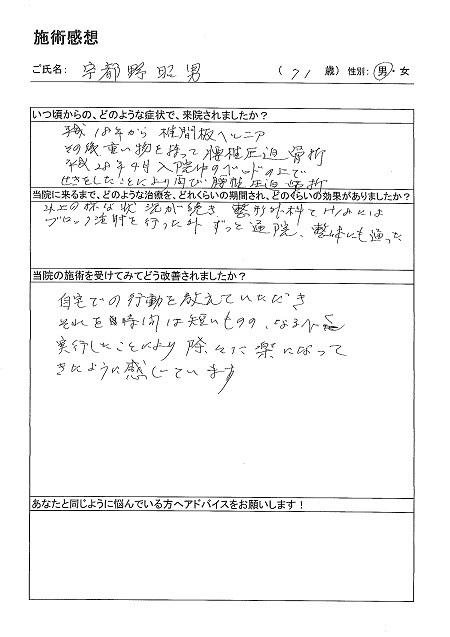 施術感想
ご氏名: 宇都野 昭男 ( 71 歳) 性別: 男・女
いつ頃からの、どのような症状で、来院されましたか?
平成18年から 椎間板ヘルニア
その後 重い物を持って 腰椎圧迫骨折
平成28年4月 入院中のベッドの上で
せきをしたことにより再び 腰椎圧迫骨折
当院に来るまで、どのような治療を、どれくらいの期間され、どのくらいの効果がありましたか?
以上の様な状況が続き、整形外科で
ブロック注射を行った外 ずっと通院、整体にも通った
当院の施術を受けてみてどう改善されましたか?
自宅での行動を教えていただき
それを 時間は短いものの、なるべく
実行したことにより 除々に楽になって
きたように感じています
あなたと同じように悩んでいる方へアドバイスをお願いします!